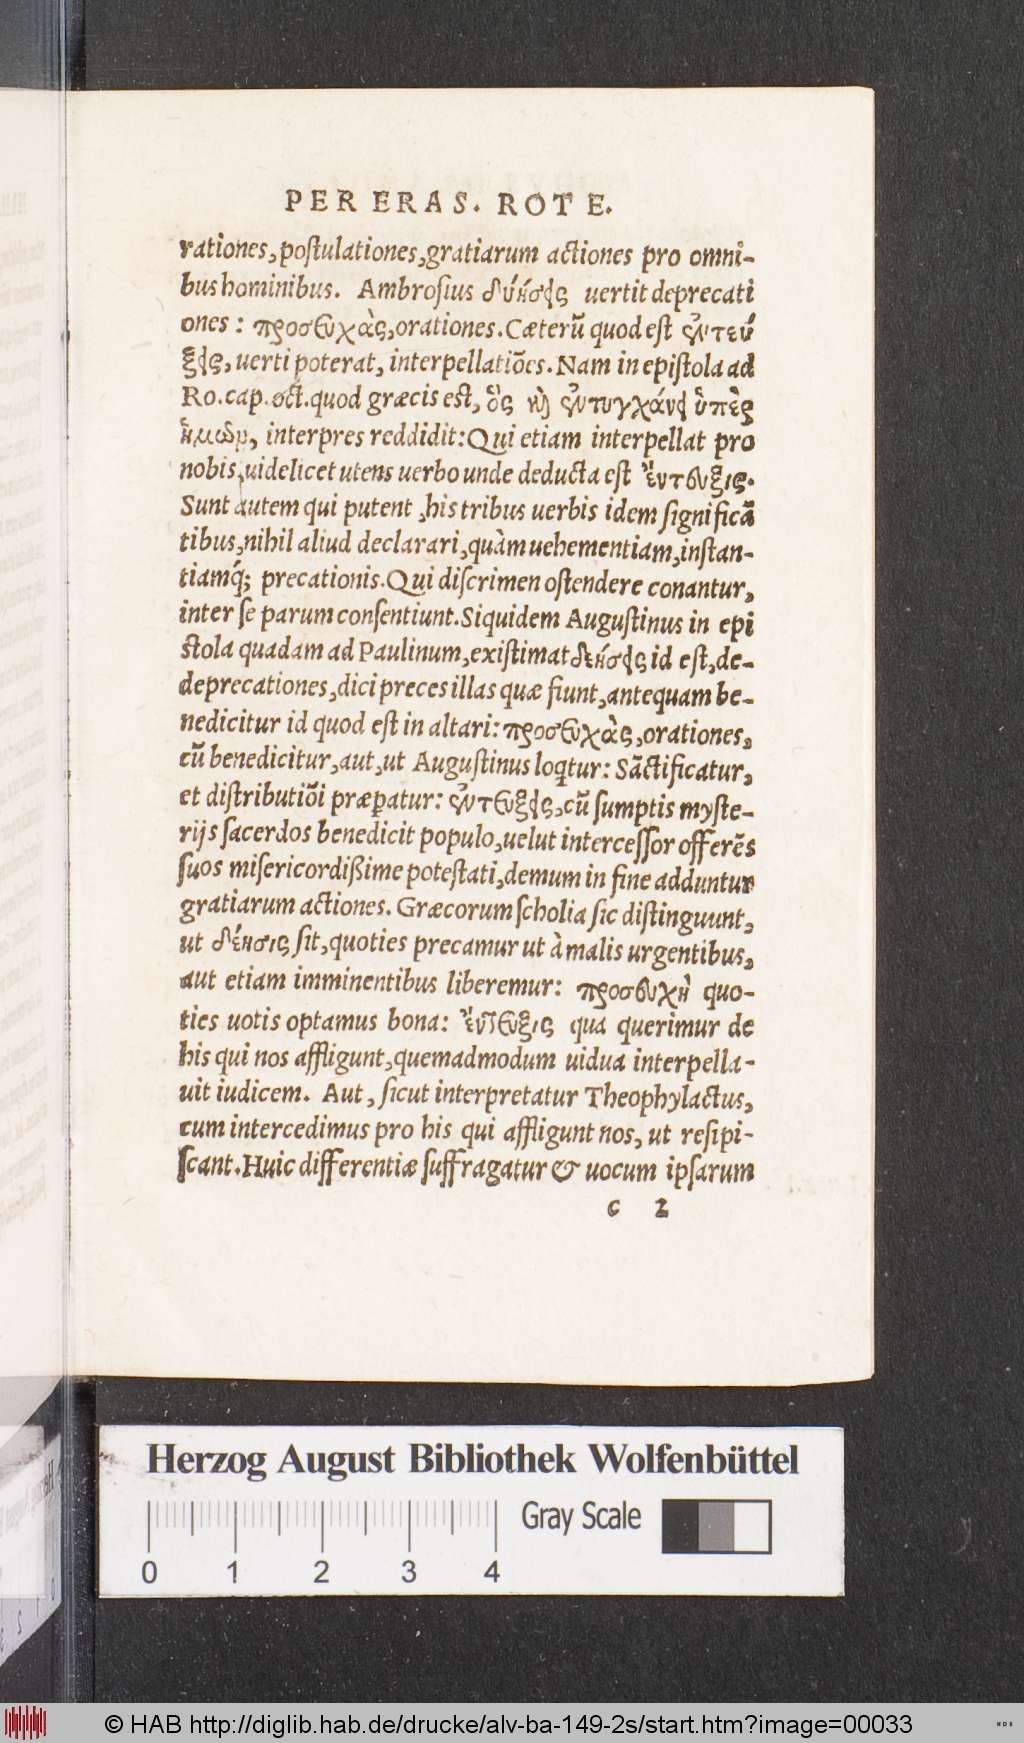 PER ERAS. ROTE.
rationes, postulationes, gratiarum actiones pro omni-
bus hominibus. Ambrosius δεήσεις uertit deprecati
ones: προσευχὰς, orationes. Cæterũ quod est ἐντεύ
ξεις, uerti poterat, interpellatiões. Nam in epistola ad
Ro. cap. oct. quod græcis est, ὃς καὶ ἐντυγχάνει ὑπὲρ
ἡμῶν, interpres reddidit: Qui etiam interpellat pro
nobis, uidelicet utens uerbo unde deducta est ἔντευξις.
Sunt autem qui putent, his tribus uerbis idem significã
tibus, nihil aliud declarari, quàm uehementiam, instan-
tiamq́; precationis. Qui discrimen ostendere conantur,
inter se parum consentiunt. Siquidem Augustinus in epi
stola quadam ad Paulinum, existimat δεήσεις id est, de-
deprecationes, dici preces illas quæ fiunt, antequam be-
nedicitur id quod est in altari: προσευχὰς, orationes,
cũ benedicitur, aut, ut Augustinus loqtur: Sãctificatur,
et distributiõi præpatur: ἐντεύξεις, cũ sumptis myste-
rijs sacerdos benedicit populo, uelut intercessor offerẽs
suos misericordißime potestati, demum in fine adduntur
gratiarum actiones. Græcorum scholia sic distinguunt,
ut δέησις sit, quoties precamur ut à malis urgentibus,
aut etiam imminentibus liberemur: προσευχὴ quo-
ties uotis optamus bona: ἔντευξις qua querimur de
his qui nos affligunt, quemadmodum uidua interpella-
uit iudicem. Aut, sicut interpretatur Theophylactus,
cum intercedimus pro his qui affligunt nos, ut resipi-
scant. Huic differentiæ suffragatur & uocum ipsarum
c 2
Herzog August Bibliothek Wolfenbüttel
Gray Scale
0 1 2 3 4
© HAB http://diglib.hab.de/drucke/alv-ba-149-2s/start.htm?image=00033